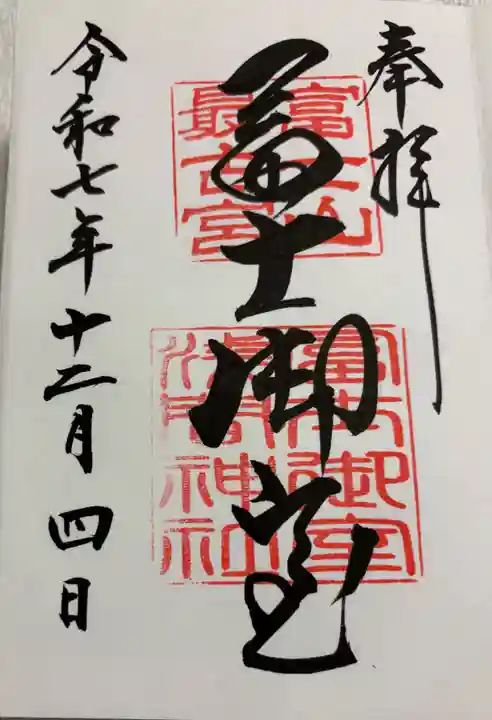 奉拝
富士山
最古宮
冨士御室
冨士御室
浅間神社
令和七年十二月四日